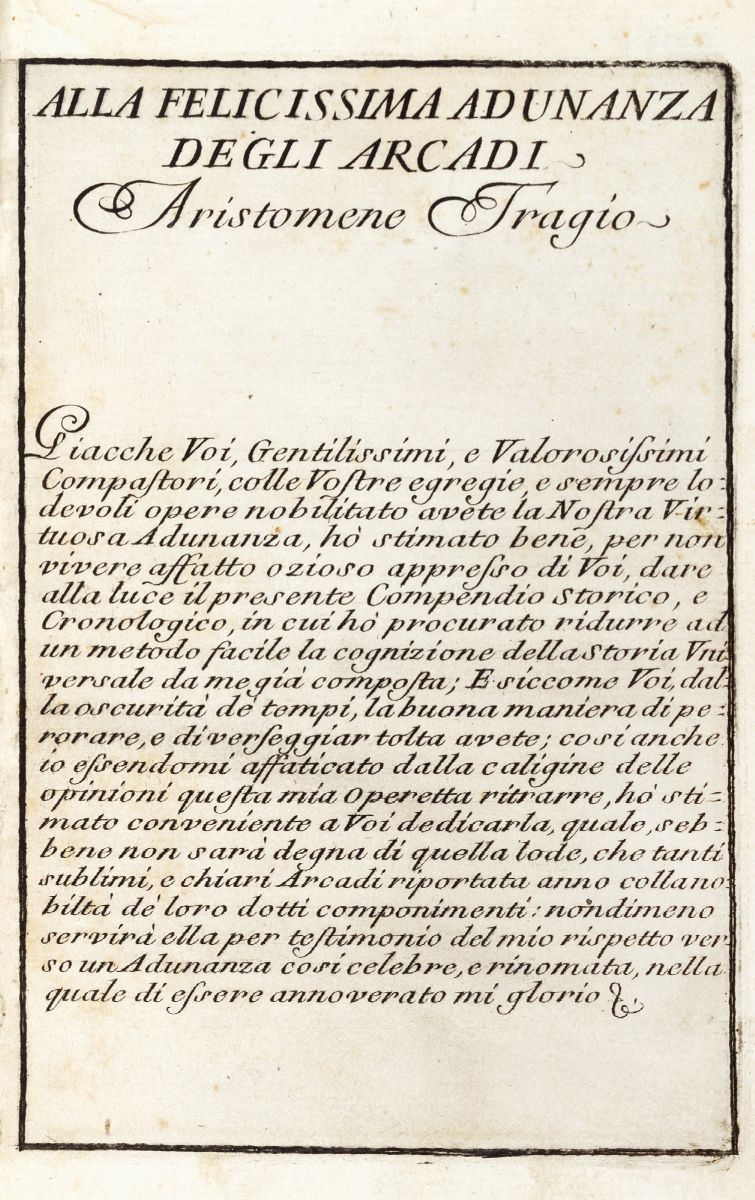 ALLA FELICISSIMA ADUNANZA
DEGLI ARCADI
Aristomene Tragio
Giacche Voi, Gentilissimi, e Valorosiſsimi
Compaſtori, colle Voſtre egregie, e sempre lo=
devoli opere nobilitato avete la Noſtra Vir=
tuosa Adunanza, hò stimato bene, per non
vivere affatto ozioso appreſso di Voi, dare
alla luce il presente Compendio Storico, e
Cronologico, in cui hò procurato ridurre ad
un metodo facile la cognizione della Storia Uni
versale da me già compoſta; E siccome Voi, dal=
la oscurità de' tempi, la buona maniera di pe=
rorare, e di verſeggiar tolta avete; così anche
io eſsendomi affaticato dalla caligine delle
opinioni queſta mia Operetta ritrarre, hò sti=
mato conveniente a Voi dedicarla, quale, seb=
bene non sarà degna di quella lode, che tanti
sublimi, e chiari Arcadi riportata anno colla no=
biltà de' loro dotti componimenti: nondimeno
servirà ella per teſtimonio del mio rispetto ver=
so un Adunanza così celebre, e rinomata, nella
quale di eſsere annoverato mi glorio &.